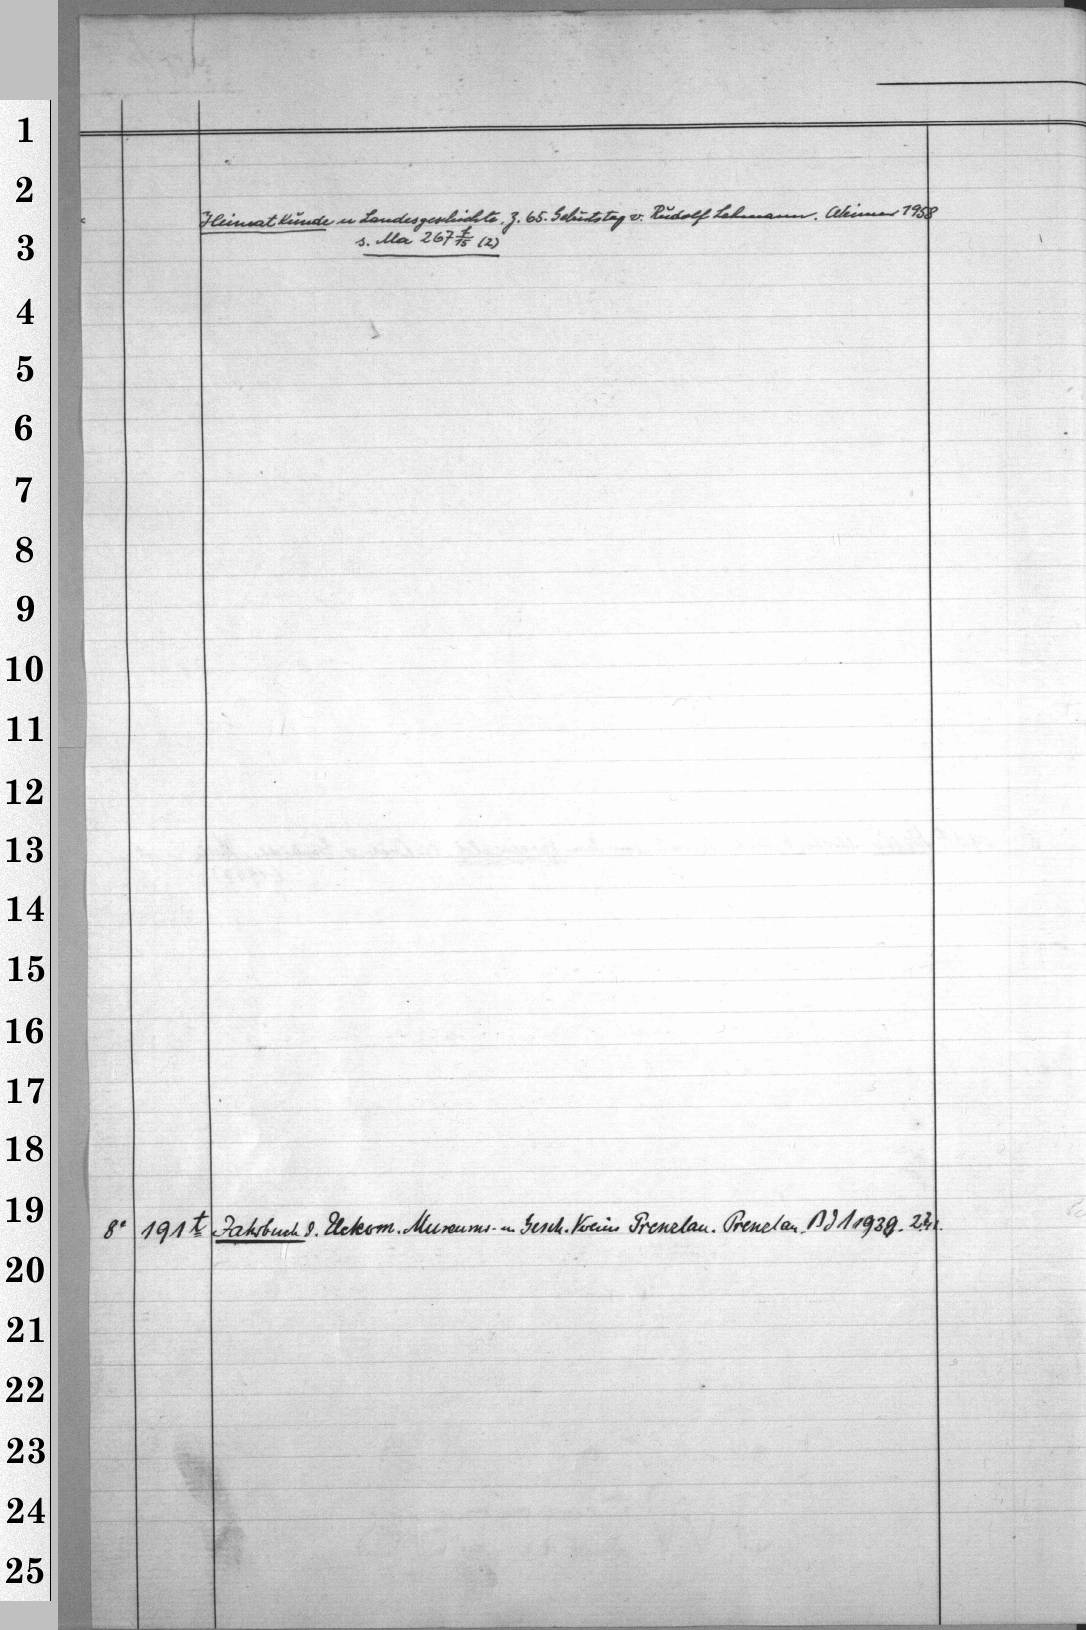 1
2
Heimatkunde u Landesgeschichte. Z. 65. Geburtstag v. Rudolf Lehmann. Weimar 1958
3
s. Ma 267 t/15 (2)
4
5
6
7
8
9
10
11
12
13
14
15
16
17
18
19
8° 191 t Jahrbuch d. Uckerm. Museums- u Gesch. Vereins Prenzlau. Prenzlau. Bd 1 1939.
20
21
22
23
24
25